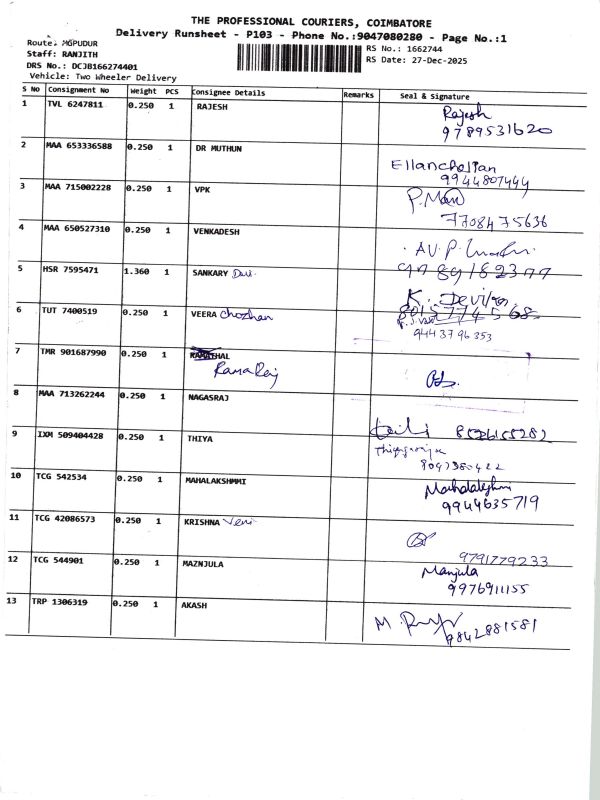 THE PROFESSIONAL COURIERS, COIMBATORE
Delivery Runsheet - P103 - Phone No.:9047080280 - Page No.:1
Route: MGPUDUR
Staff: RANJITH
DRS No.: DCJB166274401
Vehicle: Two Wheeler Delivery
RS No.: 1662744
RS Date: 27-Dec-2025
S No Consignment No Weight PCS Consignee Details Remarks Seal & Signature
1 TVL 6247811 0.250 1 RAJESH Rajesh
9789531620
2 MAA 653336588 0.250 1 DR MUTHUN Ellancholian
9944807444
3 MAA 715002228 0.250 1 VPK P.Mani
7708475636
4 MAA 650527310 0.250 1 VENKADESH AV.P.
9789182377
5 HSR 7595471 1.360 1 SANKARY K. Devi
8015774568
6 TUT 7400519 0.250 1 VEERA Chozhan
9443796353
7 TMR 901687990 0.250 1
RamaRaj
8 MAA 713262244 0.250 1 NAGASRAJ
8526155282
9 IXM 509404428 0.250 1 THIYA Thiyagaraja
8047380422
10 TCG 542534 0.250 1 MAHALAKSHMMI Mahalakshmi
9944635719
11 TCG 42086573 0.250 1 KRISHNA Veni
9791779233
12 TCG 544901 0.250 1 MAZNJULA Manjula
9976911155
13 TRP 1306319 0.250 1 AKASH M.
9842881581